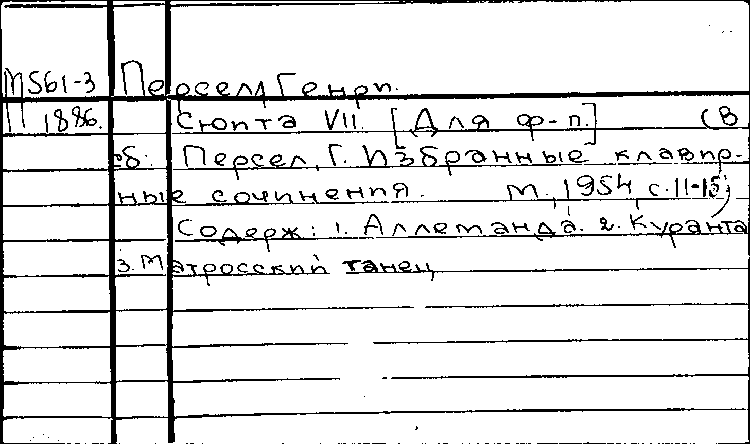 М561-3 Персел Генри.
П 1886. Сюита VII. [Для ф-п.] (В
сб: Персел, Г. Избранные клавир-
ные сочинения. М., 1954, с.11-15)
Содерж: 1. Аллеманда. 2. Куранта
3. Матросский танец